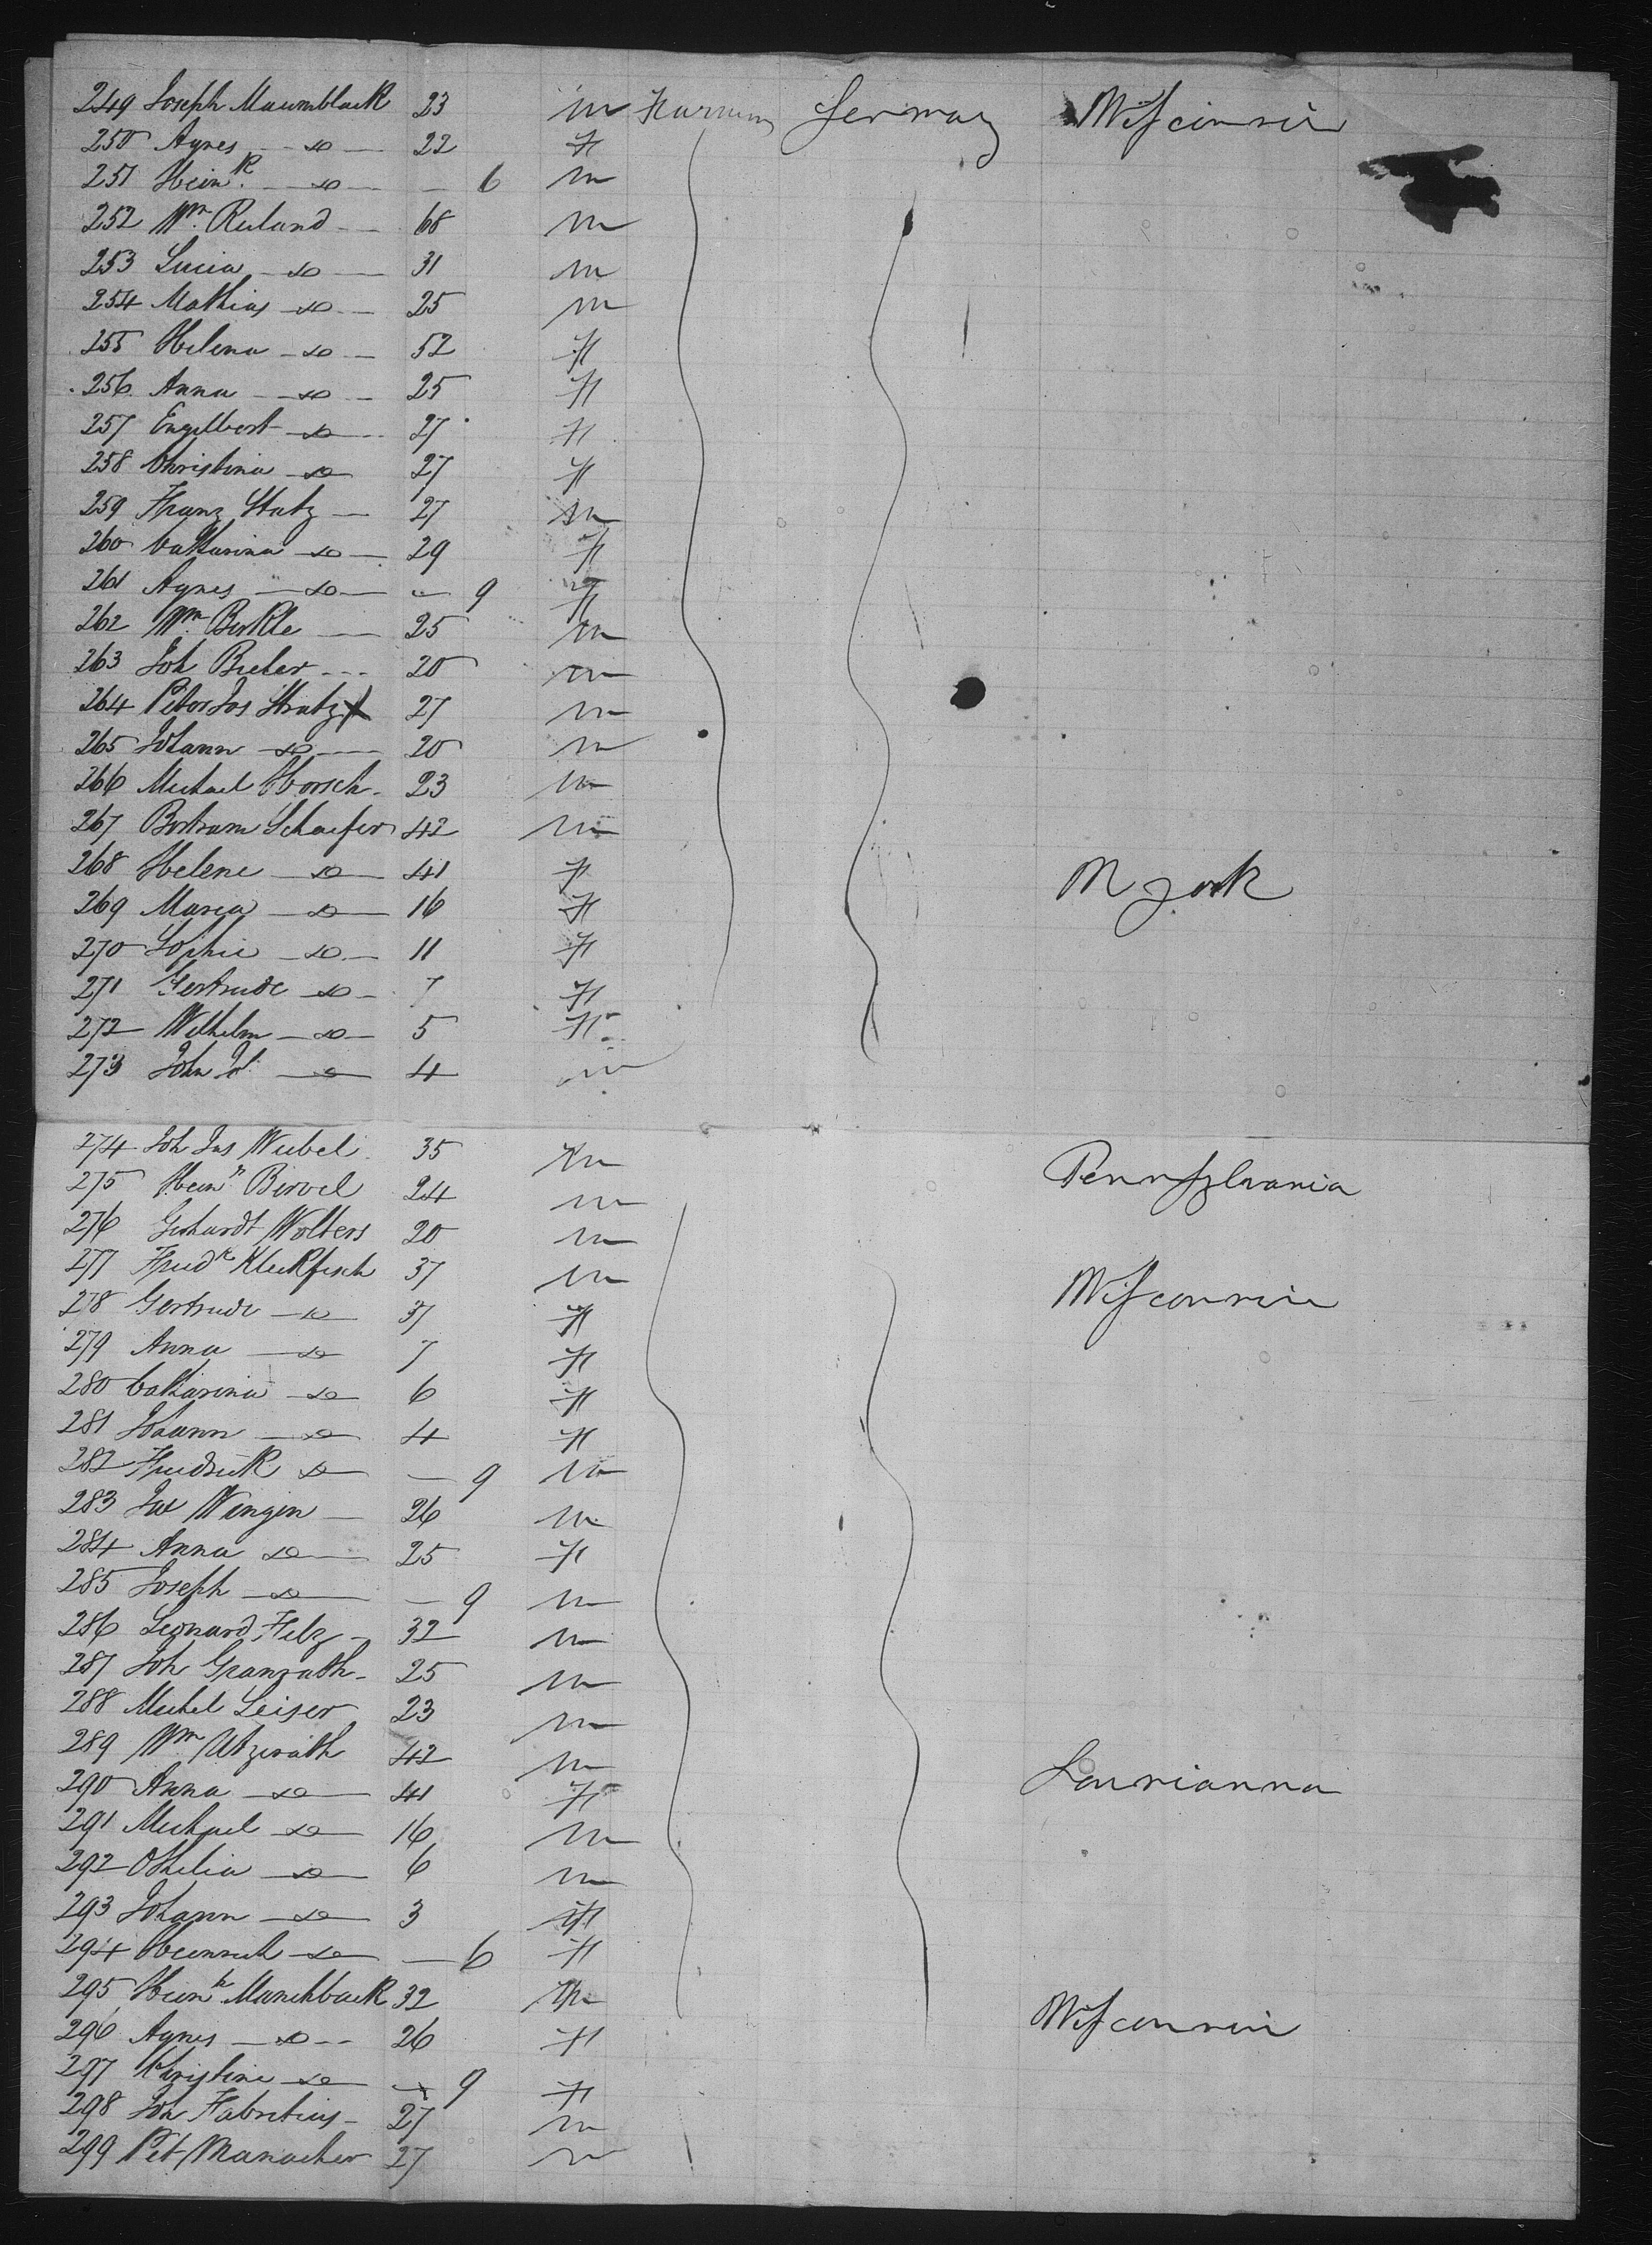 249 Joseph Maumblack 23 m Farmer Germany Wisconsin
250 Agnes do 22 F
251 Heinr. do 6 m
252 Wm. Ruland 68 m
253 Lucia do 31 m
254 Mathias do 25 m
255 Helena do 52 F
256 Anna do 25 F
257 Engelbert do 27 F
258 Christina do 27 F
259 Franz Statz 27 m
260 Catharina do 29 F
261 Agnes do 9 F
262 Wm. Berkle 25 m
263 Joh Bieler 20 m
264 Peter Jos Stratz 27 m
265 Johann do 20 m
266 Michael Horsch 23 m
267 Bertram Schaefer 42 m
268 Helene do 41 F N York
269 Maria do 16 F
270 Sophie do 11 F
271 Gertrude do 7 F
272 Wilhelm do 5 F
273 John do 4 m
274 Joh Jos Weibel 35 m
275 Heinr. Birvel 24 m Pennsylvania
276 Gerhardt Wolters 20 m
277 Friedr Kleckfisch 37 m
278 Gertrude do 37 F Wisconsin
279 Anna do 7 F
280 Catharina do 6 F
281 Johann do 4 F
282 Friedrick do 9 m
283 Jos Wingen 26 m
284 Anna do 25 F
285 Joseph do 9 m
286 Leonard Felz 32 m
287 Joh Granrath 25 m
288 Michel Leiser 23 m
289 Wm Utzerath 42 m
290 Anna do 41 F Lourianna
291 Michael do 16 m
292 Othelia do 6 m
293 Johann do 3 F
294 Heinrich do 6 F
295 Heinr Manchback 32 m
296 Agnes do 26 F Wisconsin
297 Christine do 9 F
298 Joh Fabritius 27 m
299 Pet Manacher 27 m